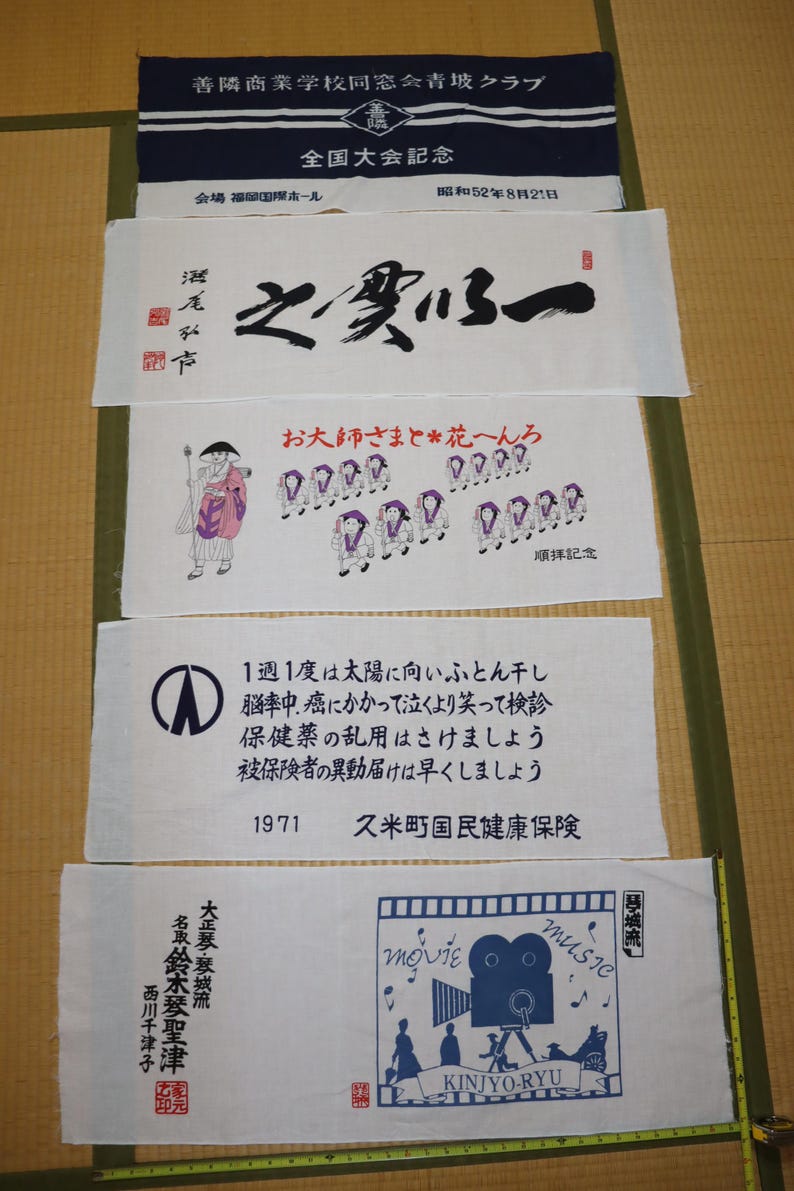 善隣商業学校同窓会青坡クラブ
善隣
全国大会記念
会場 福岡国際ホール
昭和52年8月21日
一以貫之
瀬尾弘吉
お大師さまと*花へんろ
順拝記念
1週1度は太陽に向いふとん干し
脳率中.癌にかかって泣くより笑って検診
保健薬の乱用はさけましょう
被保険者の異動届けは早くしましょう
1971
久米町国民健康保険
琴城流
MOVIE
MUSIC
KINJYO-RYU
大正琴・琴城流
名取 鈴木琴聖津
西川千津子
家元之印